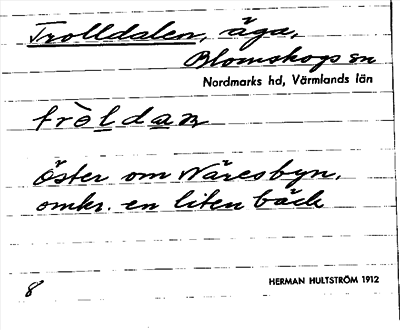 Trolldalen, äga,
Blomskogs sn
Nordmarks hd, Värmlands län
tròldan
Öster om Näresbyn,
omkr. en liten bäck
8
HERMAN HULTSTRÖM 1912